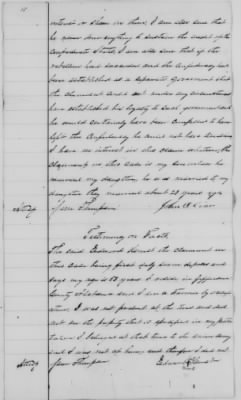 interest or share in them, I am also sure that
he never done anything to sustain the credit of the
Confederate States I am also sure that if the
rebellion had succeeded and the Confederacy had
been established as a separate Government that
the claimant could not under any circumstances
have established his loyalty to such government and
he would certainly have been compelled to have
left the Confederacy he could not have lived in
I have no interest in this claim whatever, the
claimant in this case is my son inlaw he
married my daughter, he was married to my
daughter they married about 23 years ago
Jim Thompson
John
Testimony on Facts
The said Edward the claimant in
this case being first duly sworn deposes and
says my age is 53 years I reside in Jefferson
County Alabama and I am a Farmer by occupa
ation, I was not present at the time and did
not see the property that is specified in my petition
taken I belonged at that time to the
and I was not at home, and therefore I did not
Jim Thompson
Edward